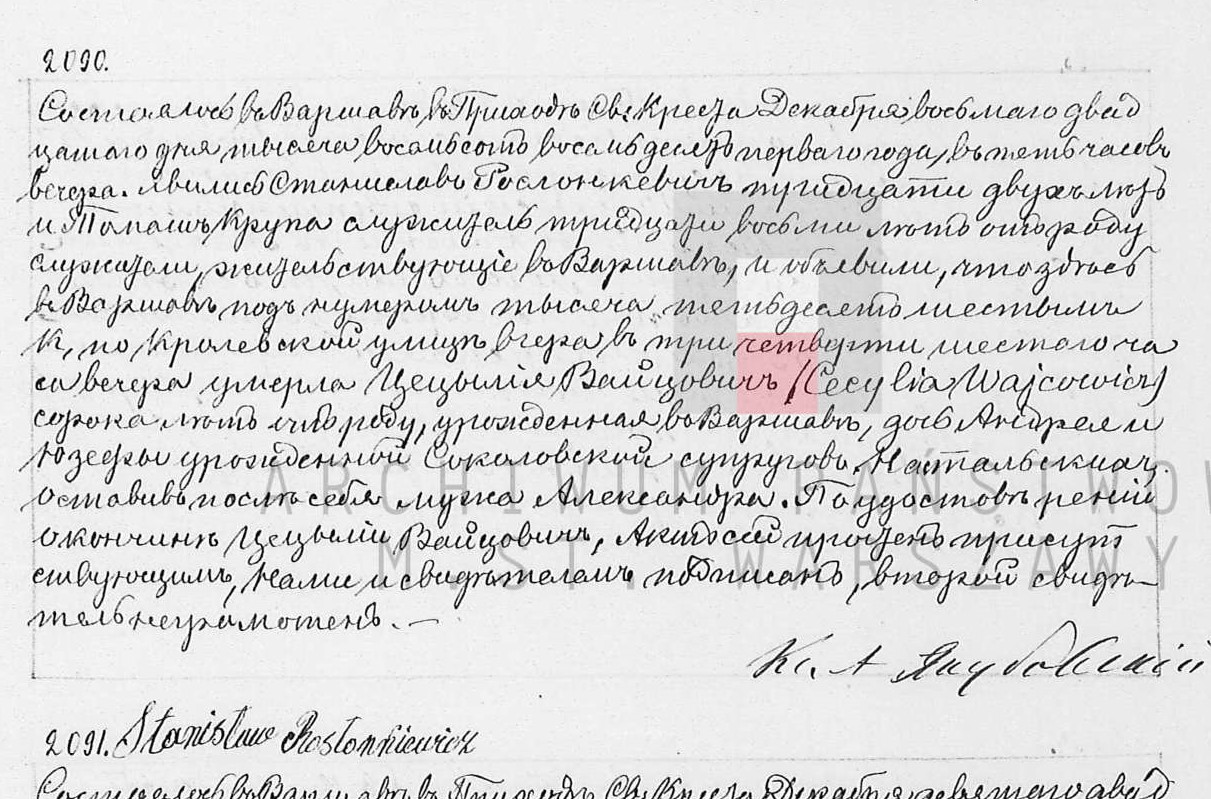 2090.
Состоялось въ Варшавѣ въ Приходѣ Св: Креста Декабря восьмаго двад
цатаго дня тысяча восемьсотъ восемьдесятъ перваго года, въ пять часовъ
вечера. Явились Станиславъ Рослонкевичъ тридцати двухъ лѣтъ
и Томашъ Крупа служитель тридцати восьми лѣтъ отъ роду
служители, жительствующіе въ Варшавѣ, и объявили, что здѣсь
въ Варшавѣ подъ нумеромъ тысяча шестьдесятъ шестымъ
К, по Кролевской улицѣ вчера въ три четверти шестаго ча
са вечера умерла Цецылія Вайцовичъ (Cecylia Wajcowicz)
сорока лѣтъ отъ роду, урожденная въ Варшавѣ, дочь Андрея и
Юзефы урожденной Соколовской супруговъ
оставивъ послѣ себя мужа Александра. По удостовѣреніи
о кончинѣ Цецыліи Вайцовичъ, Актъ сей прочтенъ присут
ствующимъ, Нами и свидѣтелемъ подписанъ, второй свидѣ
тель неграмотенъ. —
Кс. А Якубовскій
Stanisław Rosłonkiewicz
2091.
Состоялось въ Варшавѣ въ Приходѣ Св: Креста Декабря девятаго двад
ARCHIWUM PAŃSTWOW
M.ST. WARSZAWY